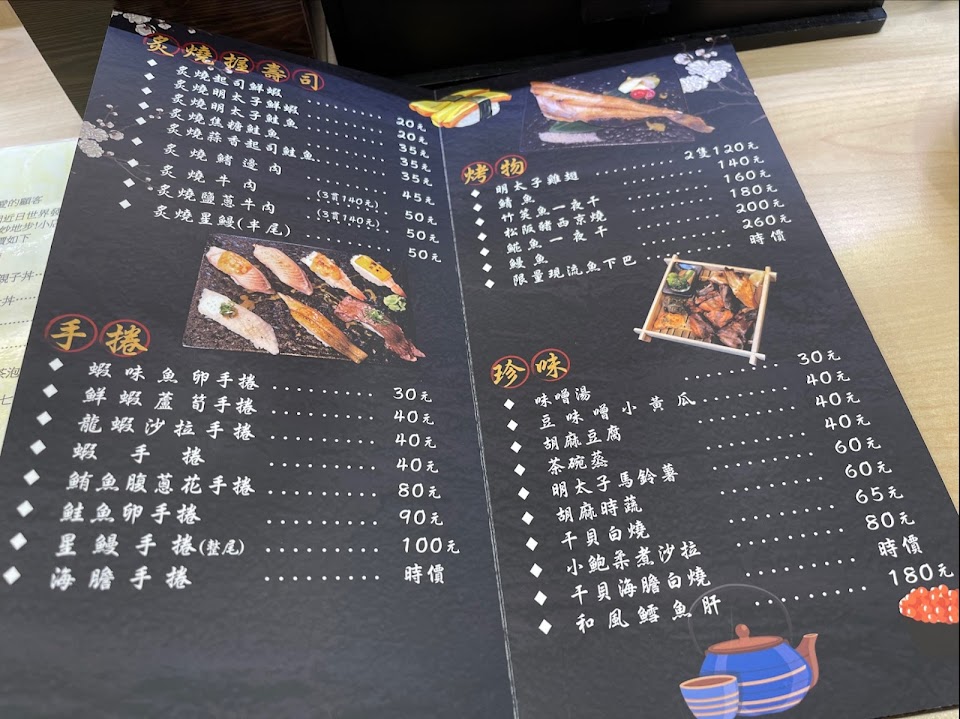 的顧客
近日世界
地步!小店
如下
親子丼……
丼……
茶泡
七
炙燒握壽司
炙燒起司鮮蝦 ........ 20元
炙燒明太子鮮蝦 ........ 20元
炙燒明太子鮭魚 ........ 35元
炙燒焦糖鮭魚 ........ 35元
炙燒蒜香起司鮭魚 ........ 35元
炙燒鰭邊肉 ........ 45元
炙燒牛肉 (3貫140元) ........ 50元
炙燒鹽蔥牛肉 (3貫140元) ........ 50元
炙燒星鰻(半尾) ........ 50元
手捲
蝦味魚卵手捲 ........ 30元
鮮蝦蘆筍手捲 ........ 40元
龍蝦沙拉手捲 ........ 40元
蝦手捲 ........ 40元
鮪魚腹蔥花手捲 ........ 80元
鮭魚卵手捲 ........ 90元
星鰻手捲(整尾) ........ 100元
海膽手捲 ........ 時價
烤物
明太子雞翅 ........ 2隻120元
鯖魚 ........ 140元
竹筴魚一夜干 ........ 160元
松阪豬西京燒 ........ 180元
魚一夜干 ........ 200元
鰻魚 ........ 260元
限量現流魚下巴 ........ 時價
珍味
味噌湯 ........ 30元
豆味噌小黃瓜 ........ 40元
胡麻豆腐 ........ 40元
茶碗蒸 ........ 40元
明太子馬鈴薯 ........ 60元
胡麻時蔬 ........ 60元
干貝白燒 ........ 65元
小鮑柔煮沙拉 ........ 80元
干貝海膽白燒 ........ 時價
和風鱈魚肝 ........ 180元